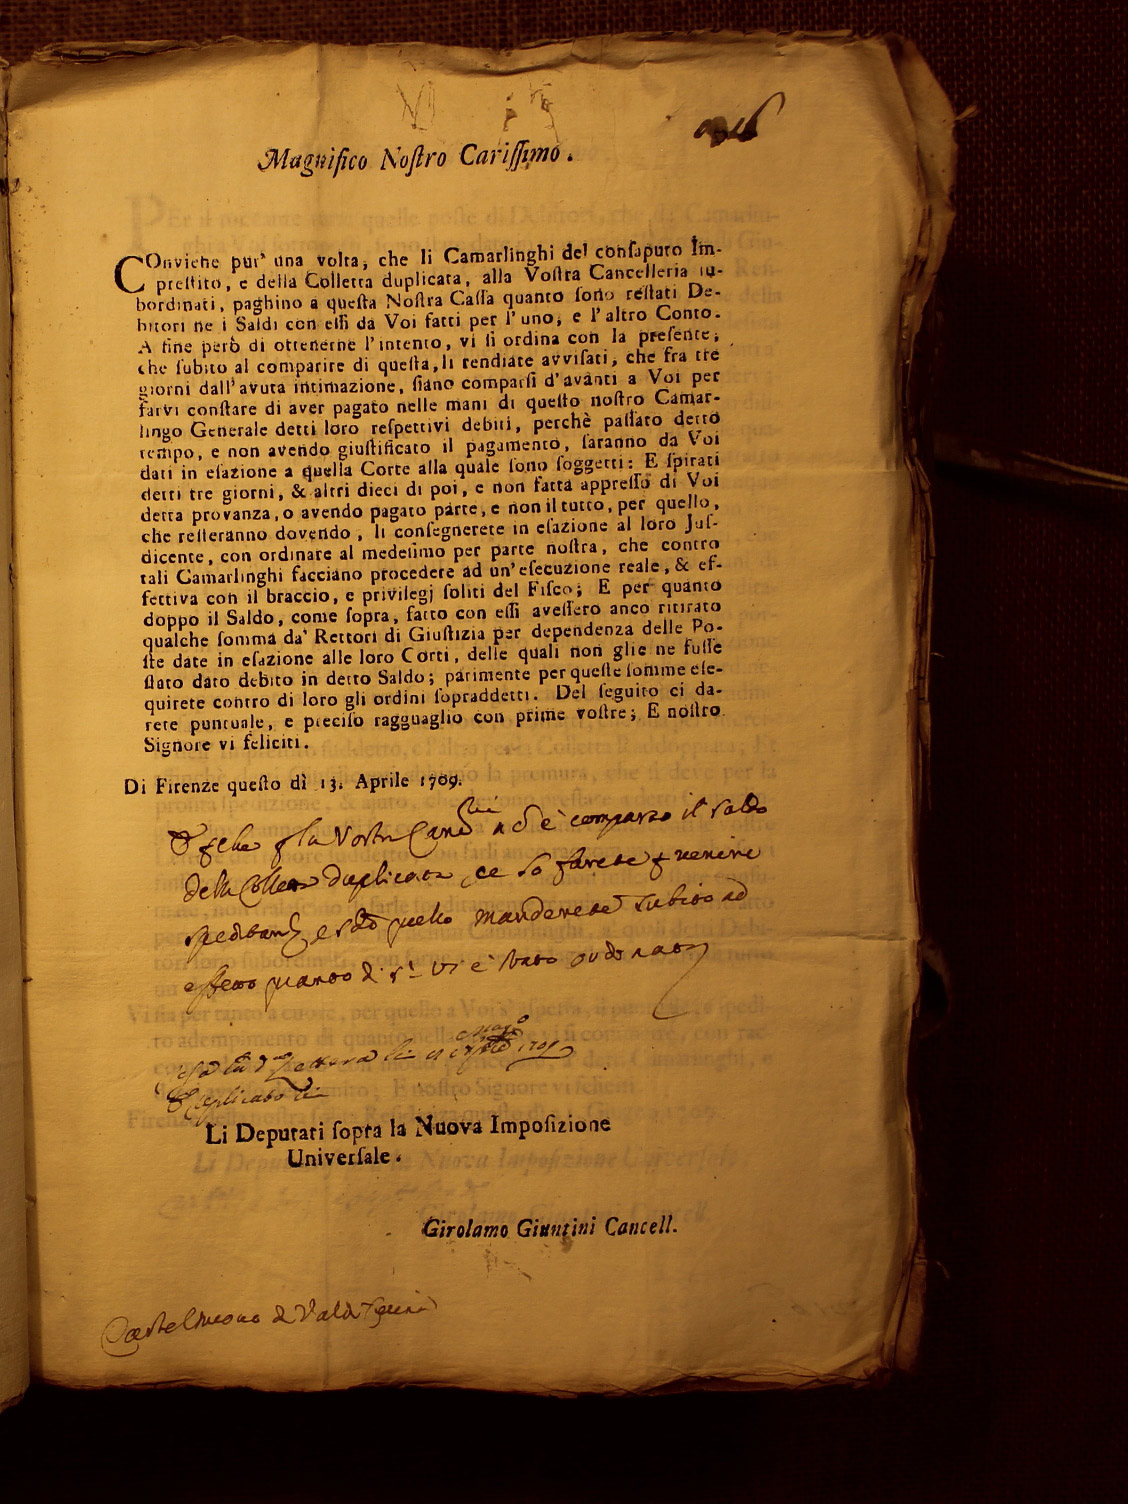 Magnifico Noſtro Cariſſimo.
COnviene pur' una volta, che li Camarlinghi del conſaputo Im-
preſtito, e della Colletta duplicata, alla Voſtra Cancelleria ſu-
bordinati, paghino a queſta Noſtra Caſſa quanto ſono reſtati De-
bitori ne i Saldi con eſſi da Voi fatti per l'uno, e l'altro Conto.
A fine però di ottenerne l'intento, vi ſi ordina con la preſente,
che ſubito al comparire di queſta, li rendiate avviſati, che fra tre
giorni dall'avuta intimazione, ſiano comparſi d'avanti a Voi per
farvi conſtare di aver pagato nelle mani di queſto noſtro Camar-
lingo Generale detti loro reſpettivi debiti, perchè paſſato detto
tempo, e non avendo giuſtificato il pagamento, ſaranno da Voi
dati in eſazione a quella Corte alla quale ſono ſoggetti: E ſpirati
detti tre giorni, & altri dieci di poi, e non fatta appreſſo di Voi
detta provanza, o avendo pagato parte, e non il tutto, per quello,
che reſteranno dovendo, li conſegnerete in eſazione al loro Juſ-
dicente, con ordinare al medeſimo per parte noſtra, che contro
tali Camarlinghi facciano procedere ad un'eſecuzione reale, & ef-
fettiva con il braccio, e privilegj ſoliti del Fiſco; E per quanto
doppo il Saldo, come ſopra, fatto con eſſi aveſſero anco ritirato
qualche ſomma da' Rettori di Giuſtizia per dependenza delle Po-
ſte date in eſazione alle loro Corti, delle quali non glie ne fuſſe
ſtato dato debito in detto Saldo; parimente per queſte ſomme eſe-
quirete contro di loro gli ordini ſopraddetti. Del ſeguito ci da-
rete puntuale, e preciſo ragguaglio con prime voſtre; E noſtro
Signore vi feliciti.
Di Firenze queſto dì 13. Aprile 1709.
la Vostra è comparso il saldo
della duplicata, farete venire
e quello manderete subito ad
effetto quanto vi è stato ordinato
Li Deputati ſopra la Nuova Impoſizione
Univerſale.
Girolamo Giuntini Cancell.